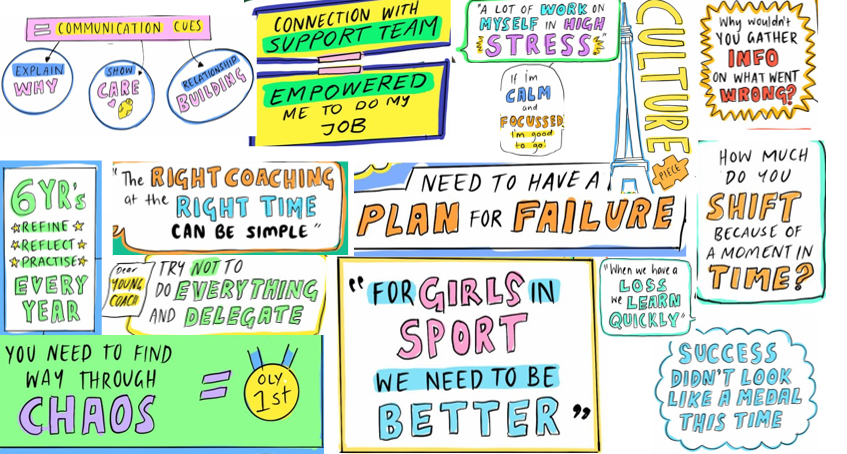 = COMMUNICATION CUES
EXPLAIN
WHY
SHOW
CARE
RELATIONSHIP
BUILDING
CONNECTION WITH
SUPPORT TEAM
=
EMPOWERED
ME TO DO MY
JOB
"A LOT OF WORK ON
MYSELF IN HIGH
STRESS"
If i'm
CALM
and
FOCUSSED
i'm good
to go!
CULTURE
PIECE
Why wouldn't
YOU GATHER
INFO
ON WHAT WENT
WRONG?
6 YR's
REFINE
REFLECT
PRACTISE
EVERY
YEAR
"The RIGHT COACHING
at the RIGHT TIME
CAN BE SIMPLE"
NEED TO HAVE A
PLAN FOR FAILURE
HOW MUCH
DO YOU
SHIFT
BECAUSE OF
A MOMENT IN
TIME?
Dear
YOUNG
COACH
TRY NOT TO
DO EVERYTHING
AND DELEGATE
"FOR GIRLS IN
SPORT
WE NEED TO BE
BETTER"
"When we have a
LOSS
we LEARN
QUICKLY"
YOU NEED TO FIND
WAY THROUGH
CHAOS
=
OLY
1st
SUCCESS
DIDN'T LOOK
LIKE A MEDAL
THIS TIME